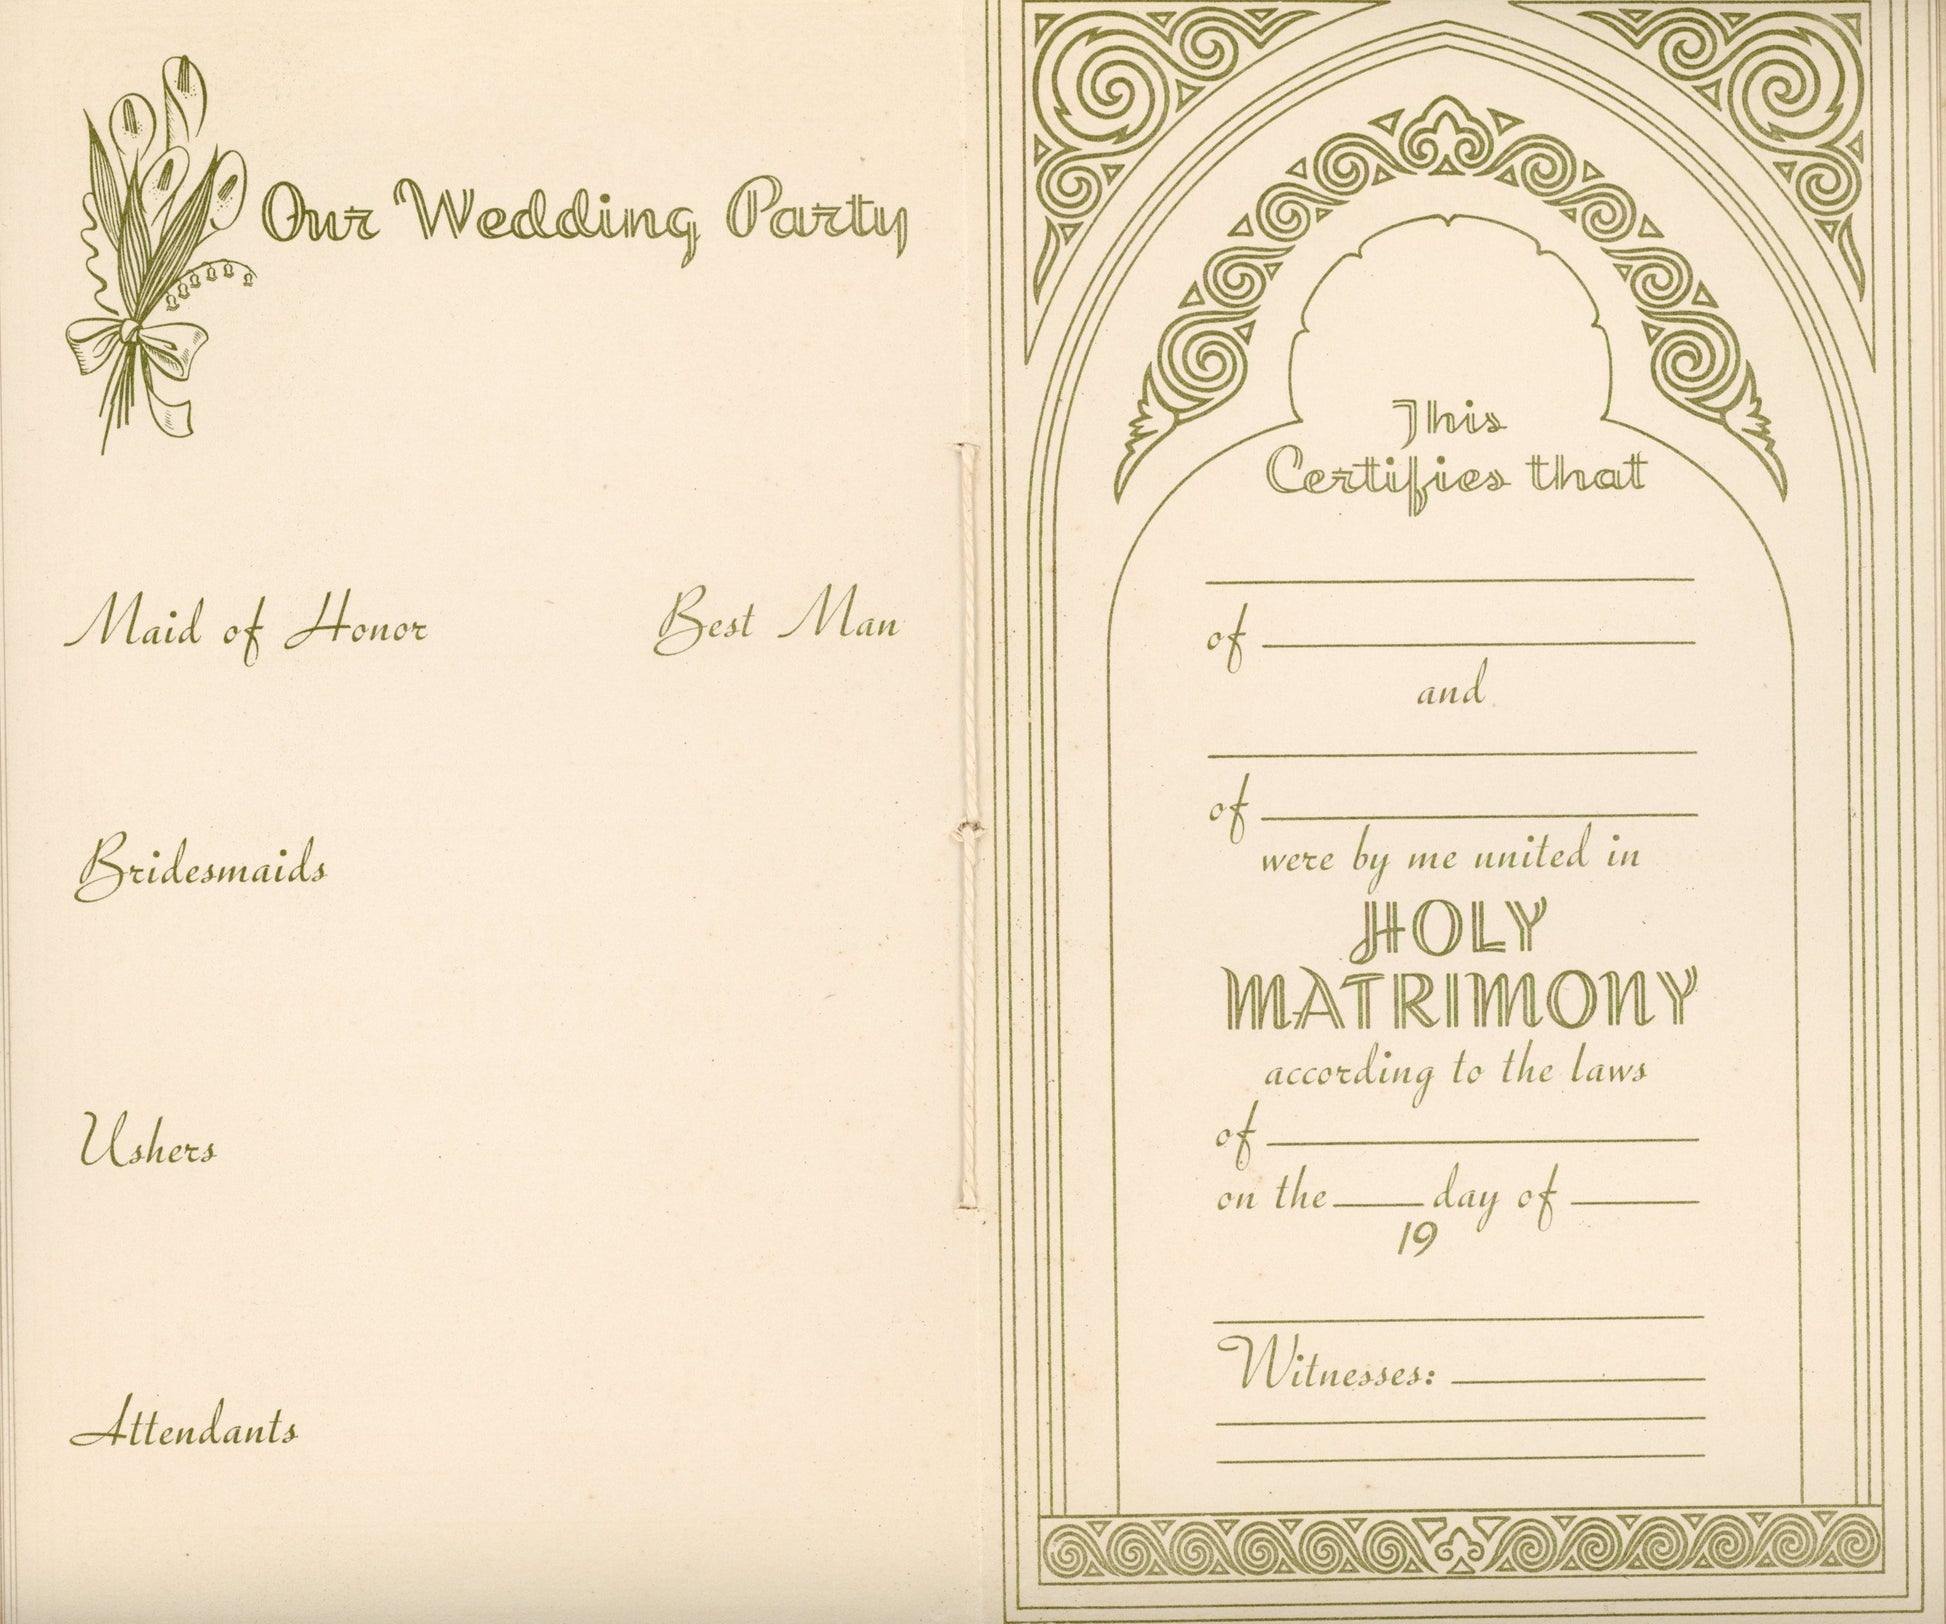 Our Wedding Party
Maid of Honor
Best Man
Bridesmaids
Ushers
Attendants
This
Certifies that
of
and
of
were by me united in
HOLY
MATRIMONY
according to the laws
of
on the ____ day of ____
19
Witnesses: